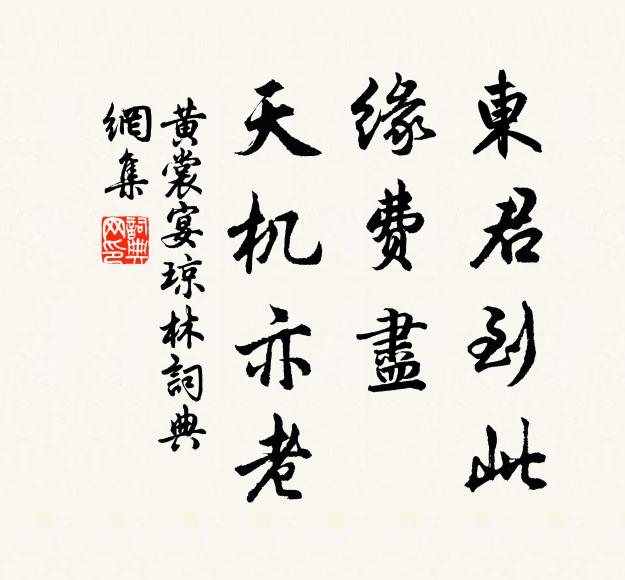 東君到此
緣費盡
天机亦老
黃裳宴琼林詞典
網集
詞典网印